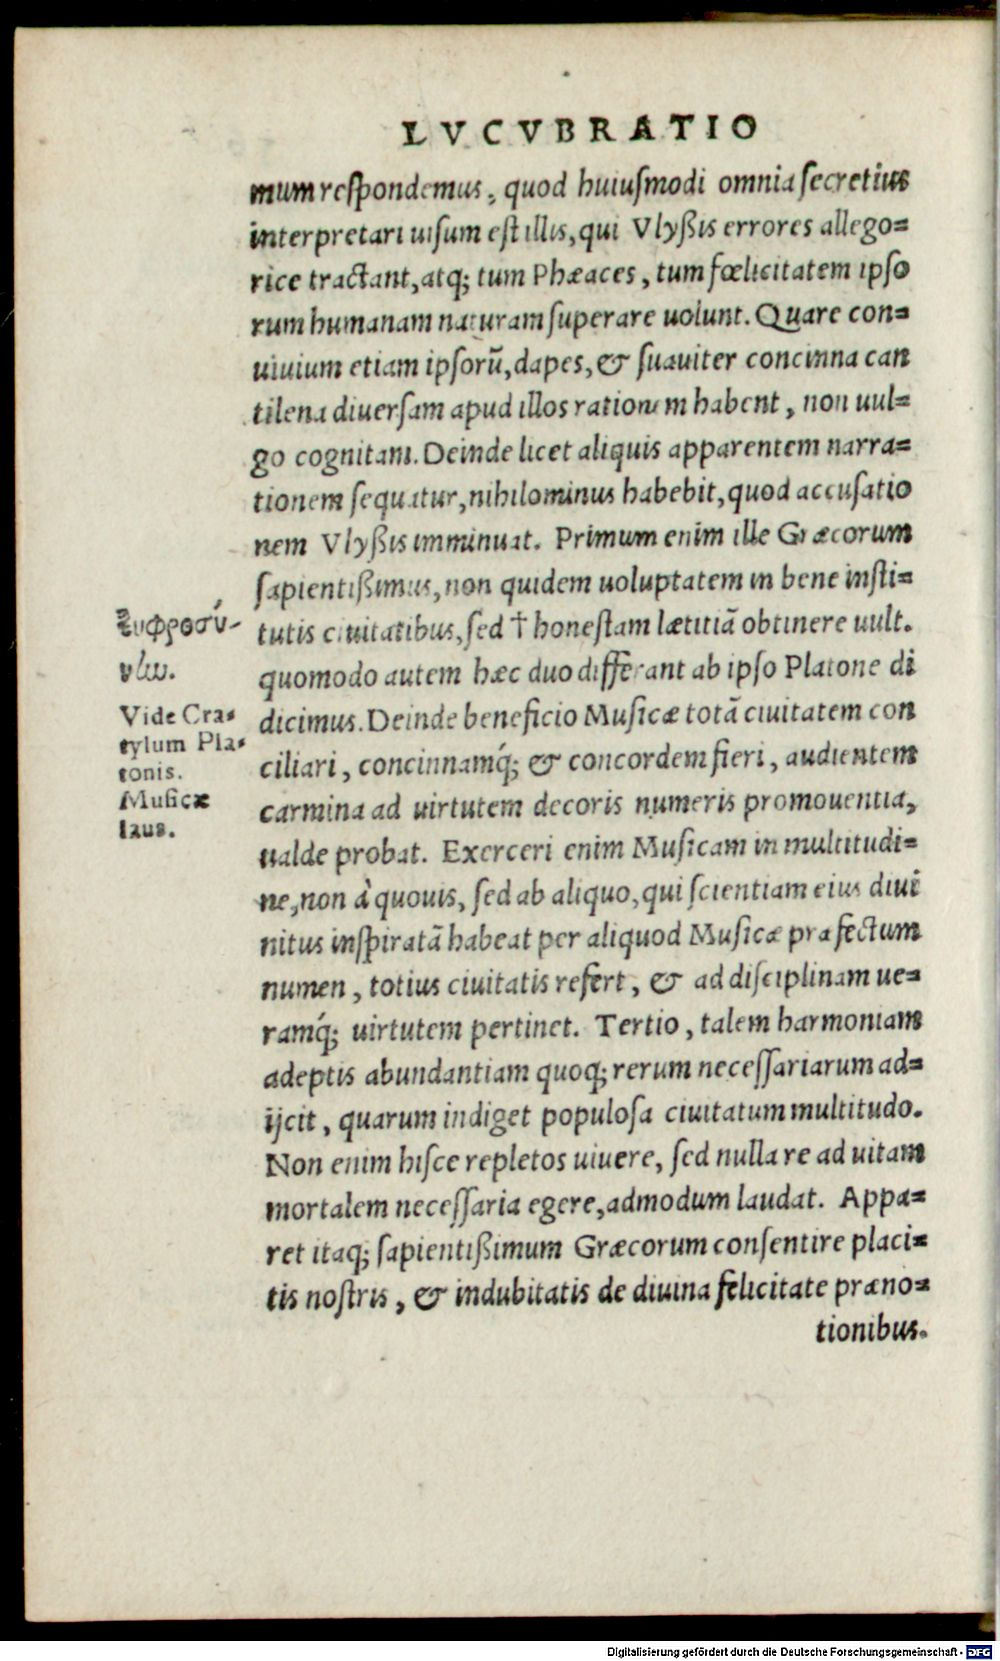 LVCVBRATIO
mum respondemus, quod huiusmodi omnia secretius
interpretari uisum est illis, qui Vlyßis errores allego=
rice tractant, atq; tum Phæaces, tum fœlicitatem ipso
rum humanam naturam superare uolunt. Quare con=
uiuium etiam ipsorū, dapes, & suauiter concinna can
tilena diuersam apud illos rationem habent, non uul=
go cognitam. Deinde licet aliquis apparentem narra=
tionem sequatur, nihilominus habebit, quod accusatio
nem Vlyßis imminuat. Primum enim ille Græcorum
sapientißimus, non quidem uoluptatem in bene insti=
tutis ciuitatibus, sed † honestam lætitiā obtinere uult.
quomodo autem hæc duo differant ab ipso Platone di
dicimus. Deinde beneficio Musicæ totā ciuitatem con
ciliari, concinnamq́; & concordem fieri, audientem
carmina ad uirtutem decoris numeris promouentia,
ualde probat. Exerceri enim Musicam in multitudi=
ne, non à quouis, sed ab aliquo, qui scientiam eius diui
nitus inspiratā habeat per aliquod Musicæ præfectum
numen, totius ciuitatis refert, & ad disciplinam ue=
ramq́; uirtutem pertinet. Tertio, talem harmoniam
adeptis abundantiam quoq; rerum necessariarum ad=
ijcit, quarum indiget populosa ciuitatum multitudo.
Non enim hisce repletos uiuere, sed nulla re ad uitam
mortalem necessaria egere, admodum laudat. Appa=
ret itaq; sapientißimum Græcorum consentire placi=
tis nostris, & indubitatis de diuina felicitate præno=
tionibus.
‡υφροσύ-
νίω.
Vide Cra=
tylum Pla=
tonis.
Musicæ
laus.
Digitalisierung gefördert durch die Deutsche Forschungsgemeinschaft - DFG